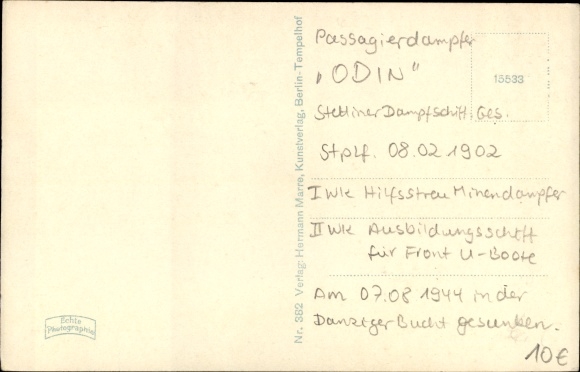 Passagierdampfer
„ODIN"
13533
Stettiner Dampfschiff. Ges.
Stplf. 08.02 1902
I Wk Hilfsstreu Minendampfer
II Wk Ausbildungsschiff
für Front U-Boote
Am 07.08 1944 in der
Danziger Bucht gesunken.
10€
Nr. 382 Verlag: Hermann Marre, Kunstverlag, Berlin-Tempelhof
Echte
Photographie